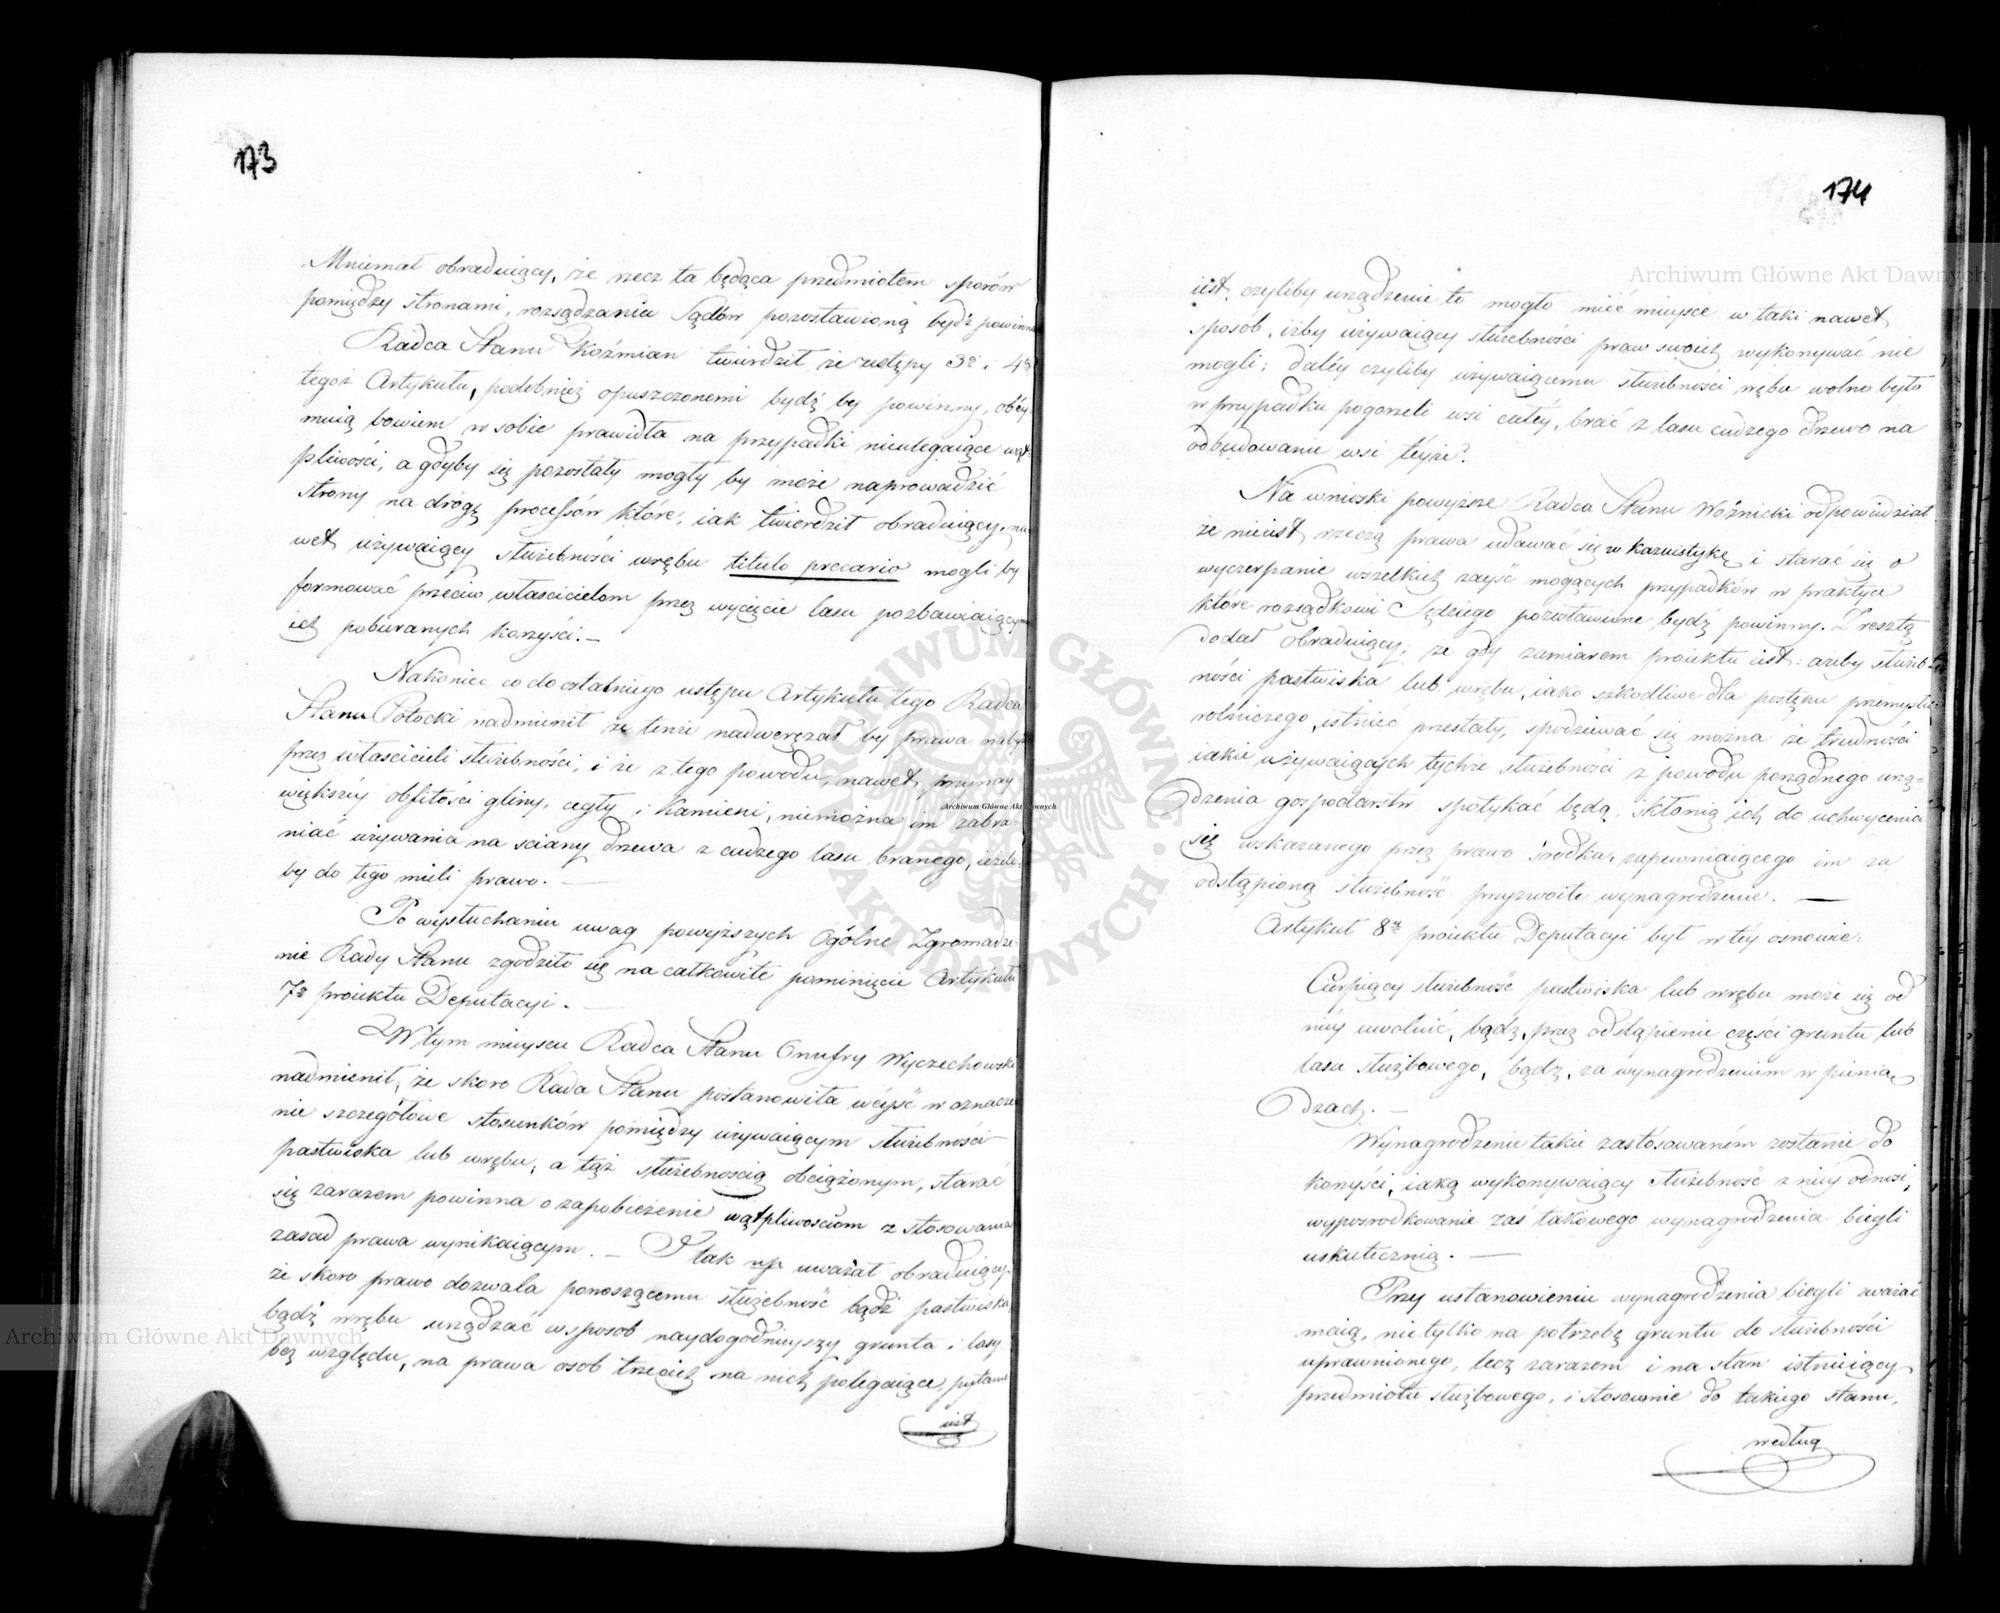 173
Mniemał obraduiący, że rzecz ta będąca przedmiotem sporów
pomiędzy stronami, rozsądzaniu Sądów pozostawioną bydź powinna
Radca Stanu Koźmian twierdził że ustępy 3ci i 4ty
tegoż Artykułu, podobnież opuszczonemi bydź by powinny, obéy-
muią bowiem w sobie prawidła na przypadki nieulegaiące wąt-
pliwości, a gdyby się pozostały mogły by może naprowadzić
strony na drogę processów które, iak twierdził obraduiący, na-
wet używaiący służebności wrębu titulo precario mogli by
formować przeciw właścicielom przez wycięcie lasu pozbawiaiącym
ich pobieranych korzyści. —
Nakoniec co do ostatniego ustępu Artykułu tego Radca
Stanu Potocki nadmienił że tenże nadweręzał by prawa nabyte
przez właścicieli służebności, i że z tego powodu, nawet przy nay-
większéy obfitości gliny, cegły i kamieni, niemożna im zabra-
niać używania na sciany drzewa z cudzego lasu branego, ieżeli
by do tego mieli prawo. —
Po wysłuchaniu uwag powyższych Ogólne Zgromadze-
nie Rady Stanu zgodziło się na całkowite pominięcie Artykułu
7o proiektu Deputacyi. —
W tym mieyscu Radca Stanu Onufry Wyczechowski
nadmienił, że skoro Rada Stanu postanowiła wéyść w oznacze-
nie szczegółowe stosunków pomiędzy używaiącym służebności
pastwiska lub wrębu, a tąż służebnością obciążonym, starać
się zarazem powinna o zapobieżenie wątpliwościom z stosowania
zasad prawa wynikaiącym. — I tak np. uważał obraduiący
że skoro prawo dozwala ponoszącemu służebność bądź pastwiska
bądź wrębu urządzać w sposób naydogodnieyszy grunta i lasy
bez względu, na prawa osob trzecich na nich polegaiące, pytanie
iest
174
iest, czyliby urządzenie to mogło mieć mieysce w taki nawet
sposób, iżby używaiący służebności praw swoich wykonywać nie
mogli; daléy czyliby używaiącemu służebności wrębu wolno było
w przypadku pogorzeli wsi całéy, brać z lasu cudzego drzewo na
odbudowanie wsi téyże?
Na wnioski powyższe Radca Stanu Woźnicki odpowiedział
że nieiest rzeczą prawa udawać się w kazuistykę i starać się o
wyczerpanie wszelkich zayść mogących przypadków w praktyce
które rozsądkowi Sędziego pozostawione bydź powinny. Zresztą
dodał obraduiący, że gdy zamiarem proiektu iest: ażeby służeb-
ności pastwiska lub wrębu, iako szkodliwe dla postępu przemysłu
rolniczego, istnieć przestały, spodziewać się można że trudności
iakie używaiących tychże służebności z powodu porządnego urzą-
dzenia gospodarstw spotykać będą, skłonią ich do uchwycenia
się wskazanego przez prawo środka, zapewniaiącego im za
odstąpioną służebność przyzwoite wynagrodzenie. —
Artykuł 8y proiektu Deputacyi był w téy osnowie:
Cierpiący służebność pastwiska lub wrębu może się od
niéy uwolnić, bądź, przez odstąpienie części gruntu lub
lasu służbowego, bądź, za wynagrodzeniem w pienią-
dzach. —
Wynagrodzenie takie zastósowaném zostanie do
korzyści, iaką wykonywaiący służebność z niéy odnosi,
wypośrodkowanie zaś takowego wynagrodzenia biegli
uskutecznią. —
Przy ustanowieniu wynagrodzenia biegli zważać
maią, nietylko na potrzebę gruntu do służebności
uprawnionego, lecz zarazem i na stan istnieiący
przedmiotu służbowego, i stosownie do takiego stanu,
według
Archiwum Główne Akt Dawnych
Archiwum Główne Akt Dawnych
Archiwum Główne Akt Dawnych
ARCHIWUM GŁÓWNE AKT DAWNYCH